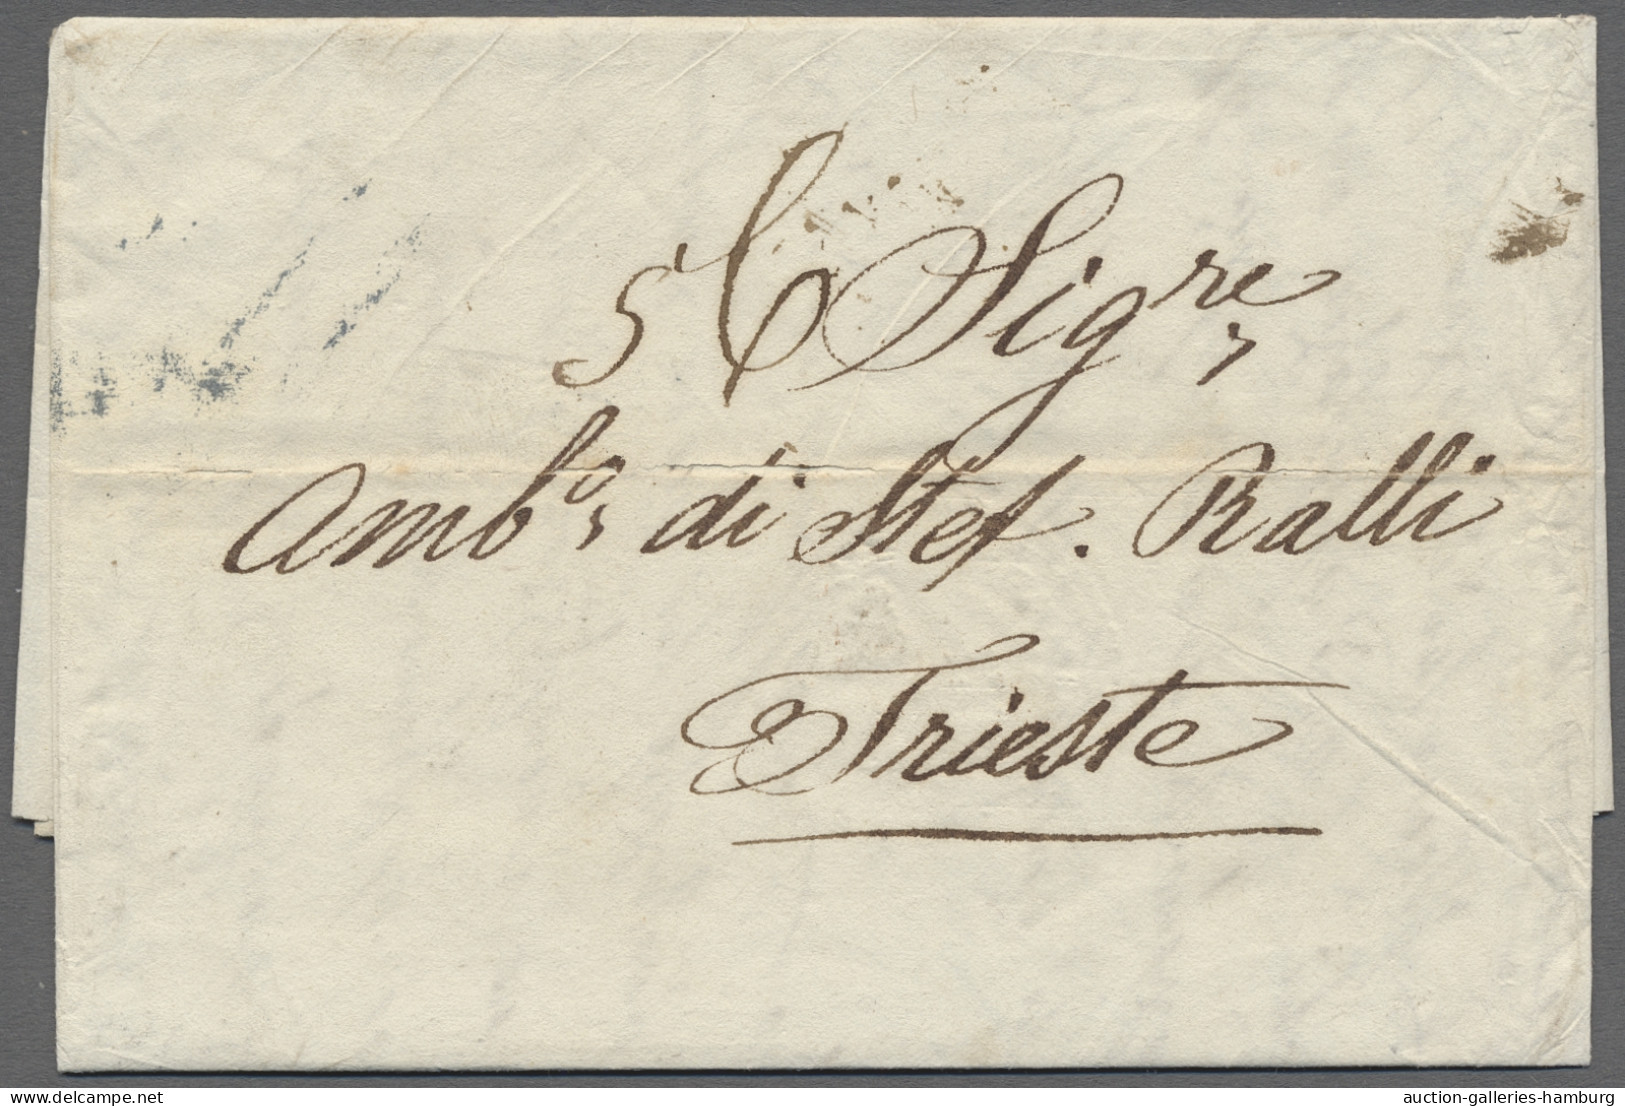 Sig.re
Amb.o di Stef. Ralli
Trieste
delcampe.net
auction-galleries-hamburg